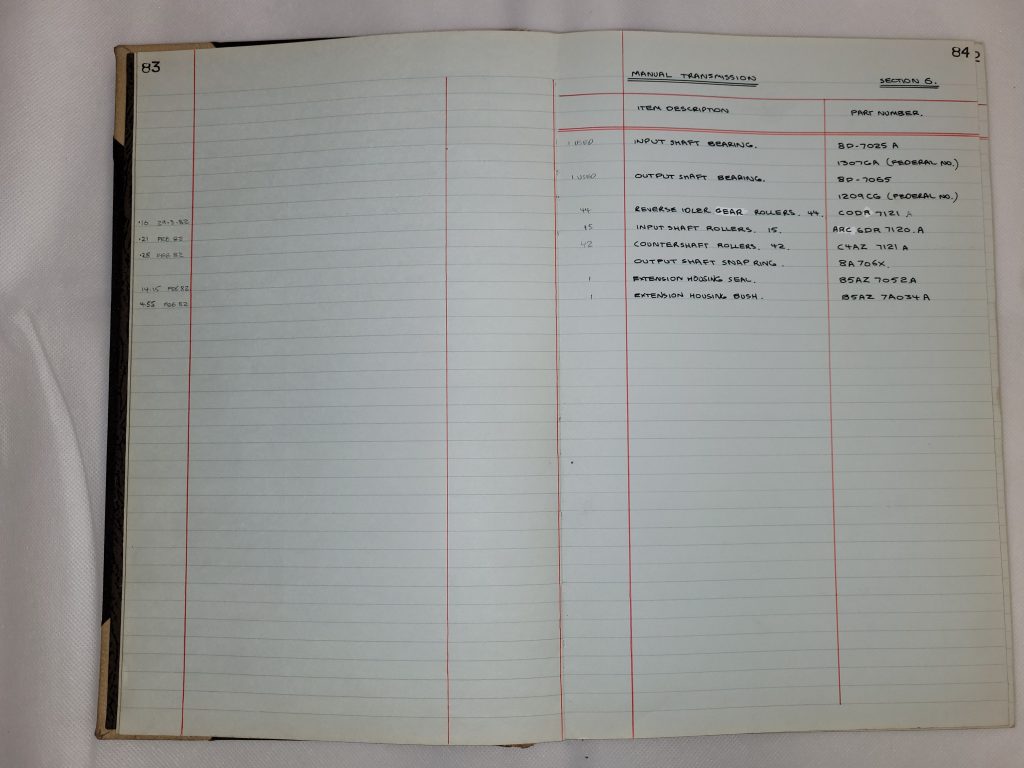 83
·16 29-3-82
·21 FEB 82
·28
14·15 FEB 82
4·55 FEB 82
84
MANUAL TRANSMISSION SECTION 6.
ITEM DESCRIPTION PART NUMBER.
1 USED INPUT SHAFT BEARING. BD-7025 A
1307GA (FEDERAL NO.)
1 USED OUTPUT SHAFT BEARING. 8D-7065
1209CG (FEDERAL NO.)
44 REVERSE IDLER GEAR ROLLERS. 44. CODR 7121 A
15 INPUT SHAFT ROLLERS. 15. ARC 6DR 7120.A
42 COUNTERSHAFT ROLLERS. 42. C4AZ 7121 A
OUTPUT SHAFT SNAP RING. 8A706X.
1 EXTENSION HOUSING SEAL. B5AZ 7052A
1 EXTENSION HOUSING BUSH. B5AZ 7A034A